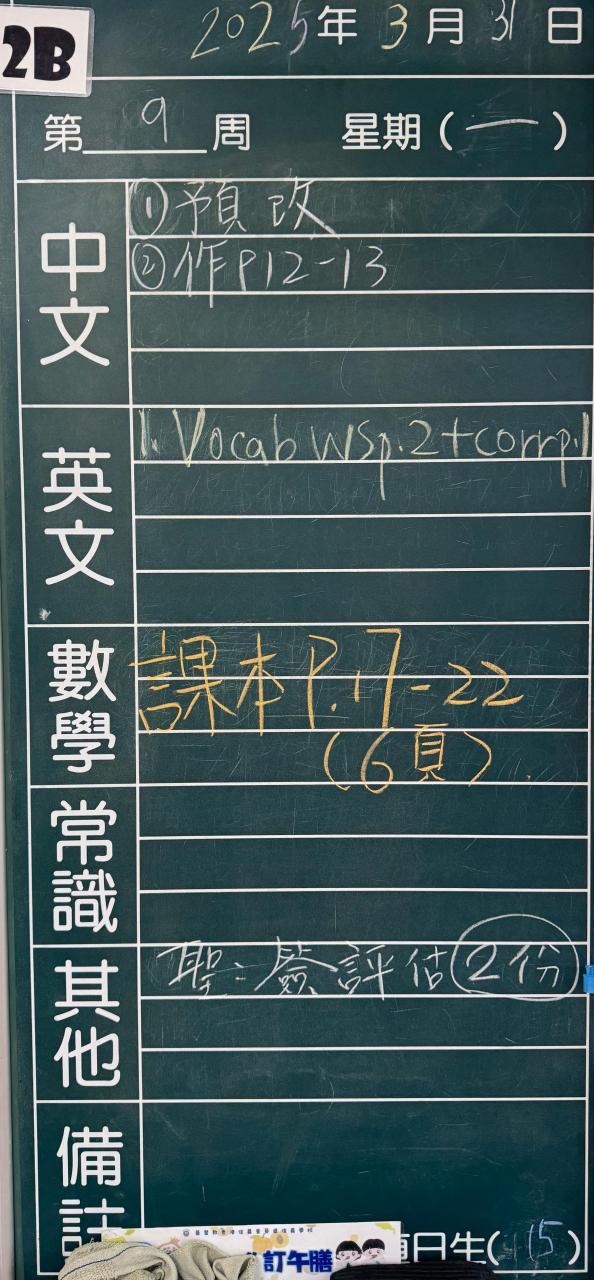 2B
2025年3月31日
第9周 星期(一)
中文
①預改
②作P12-13
英文
1. Vocab WSp.2+corrp.1
數學
課本P.17-22
(6頁)
常識
其他
聖:簽評估 2份
備註
訂午膳
值日生(15)